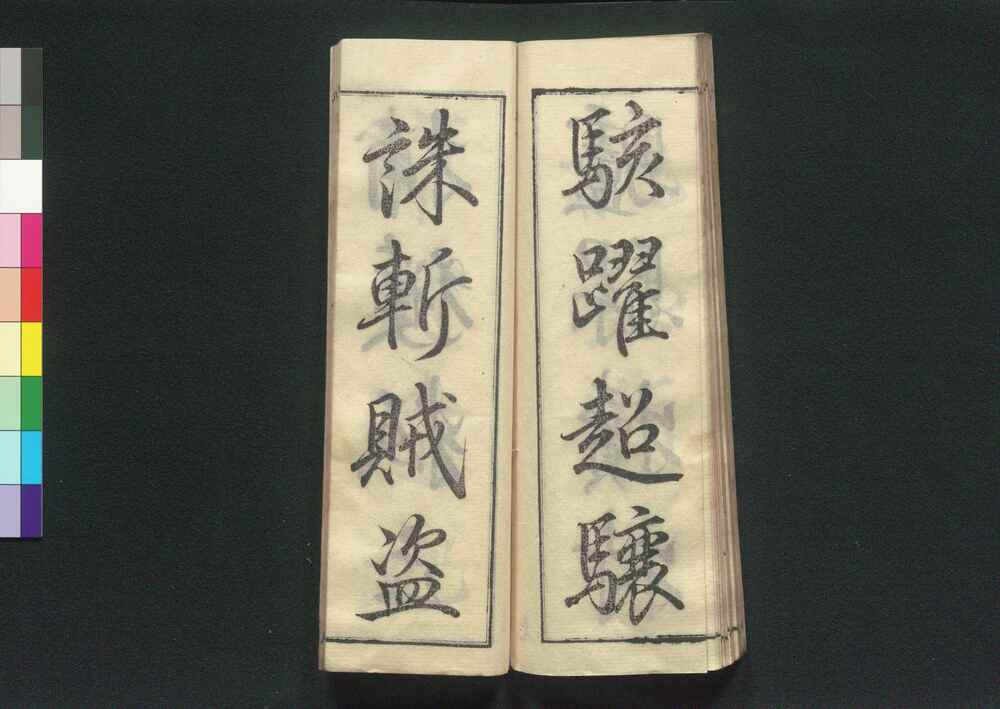 駭躍超驤
誅斬賊盗